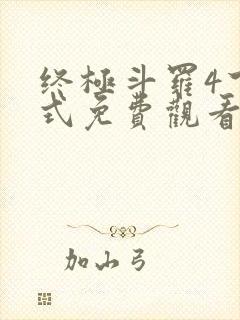 终極斗羅4下
式免費觀看
加山弓